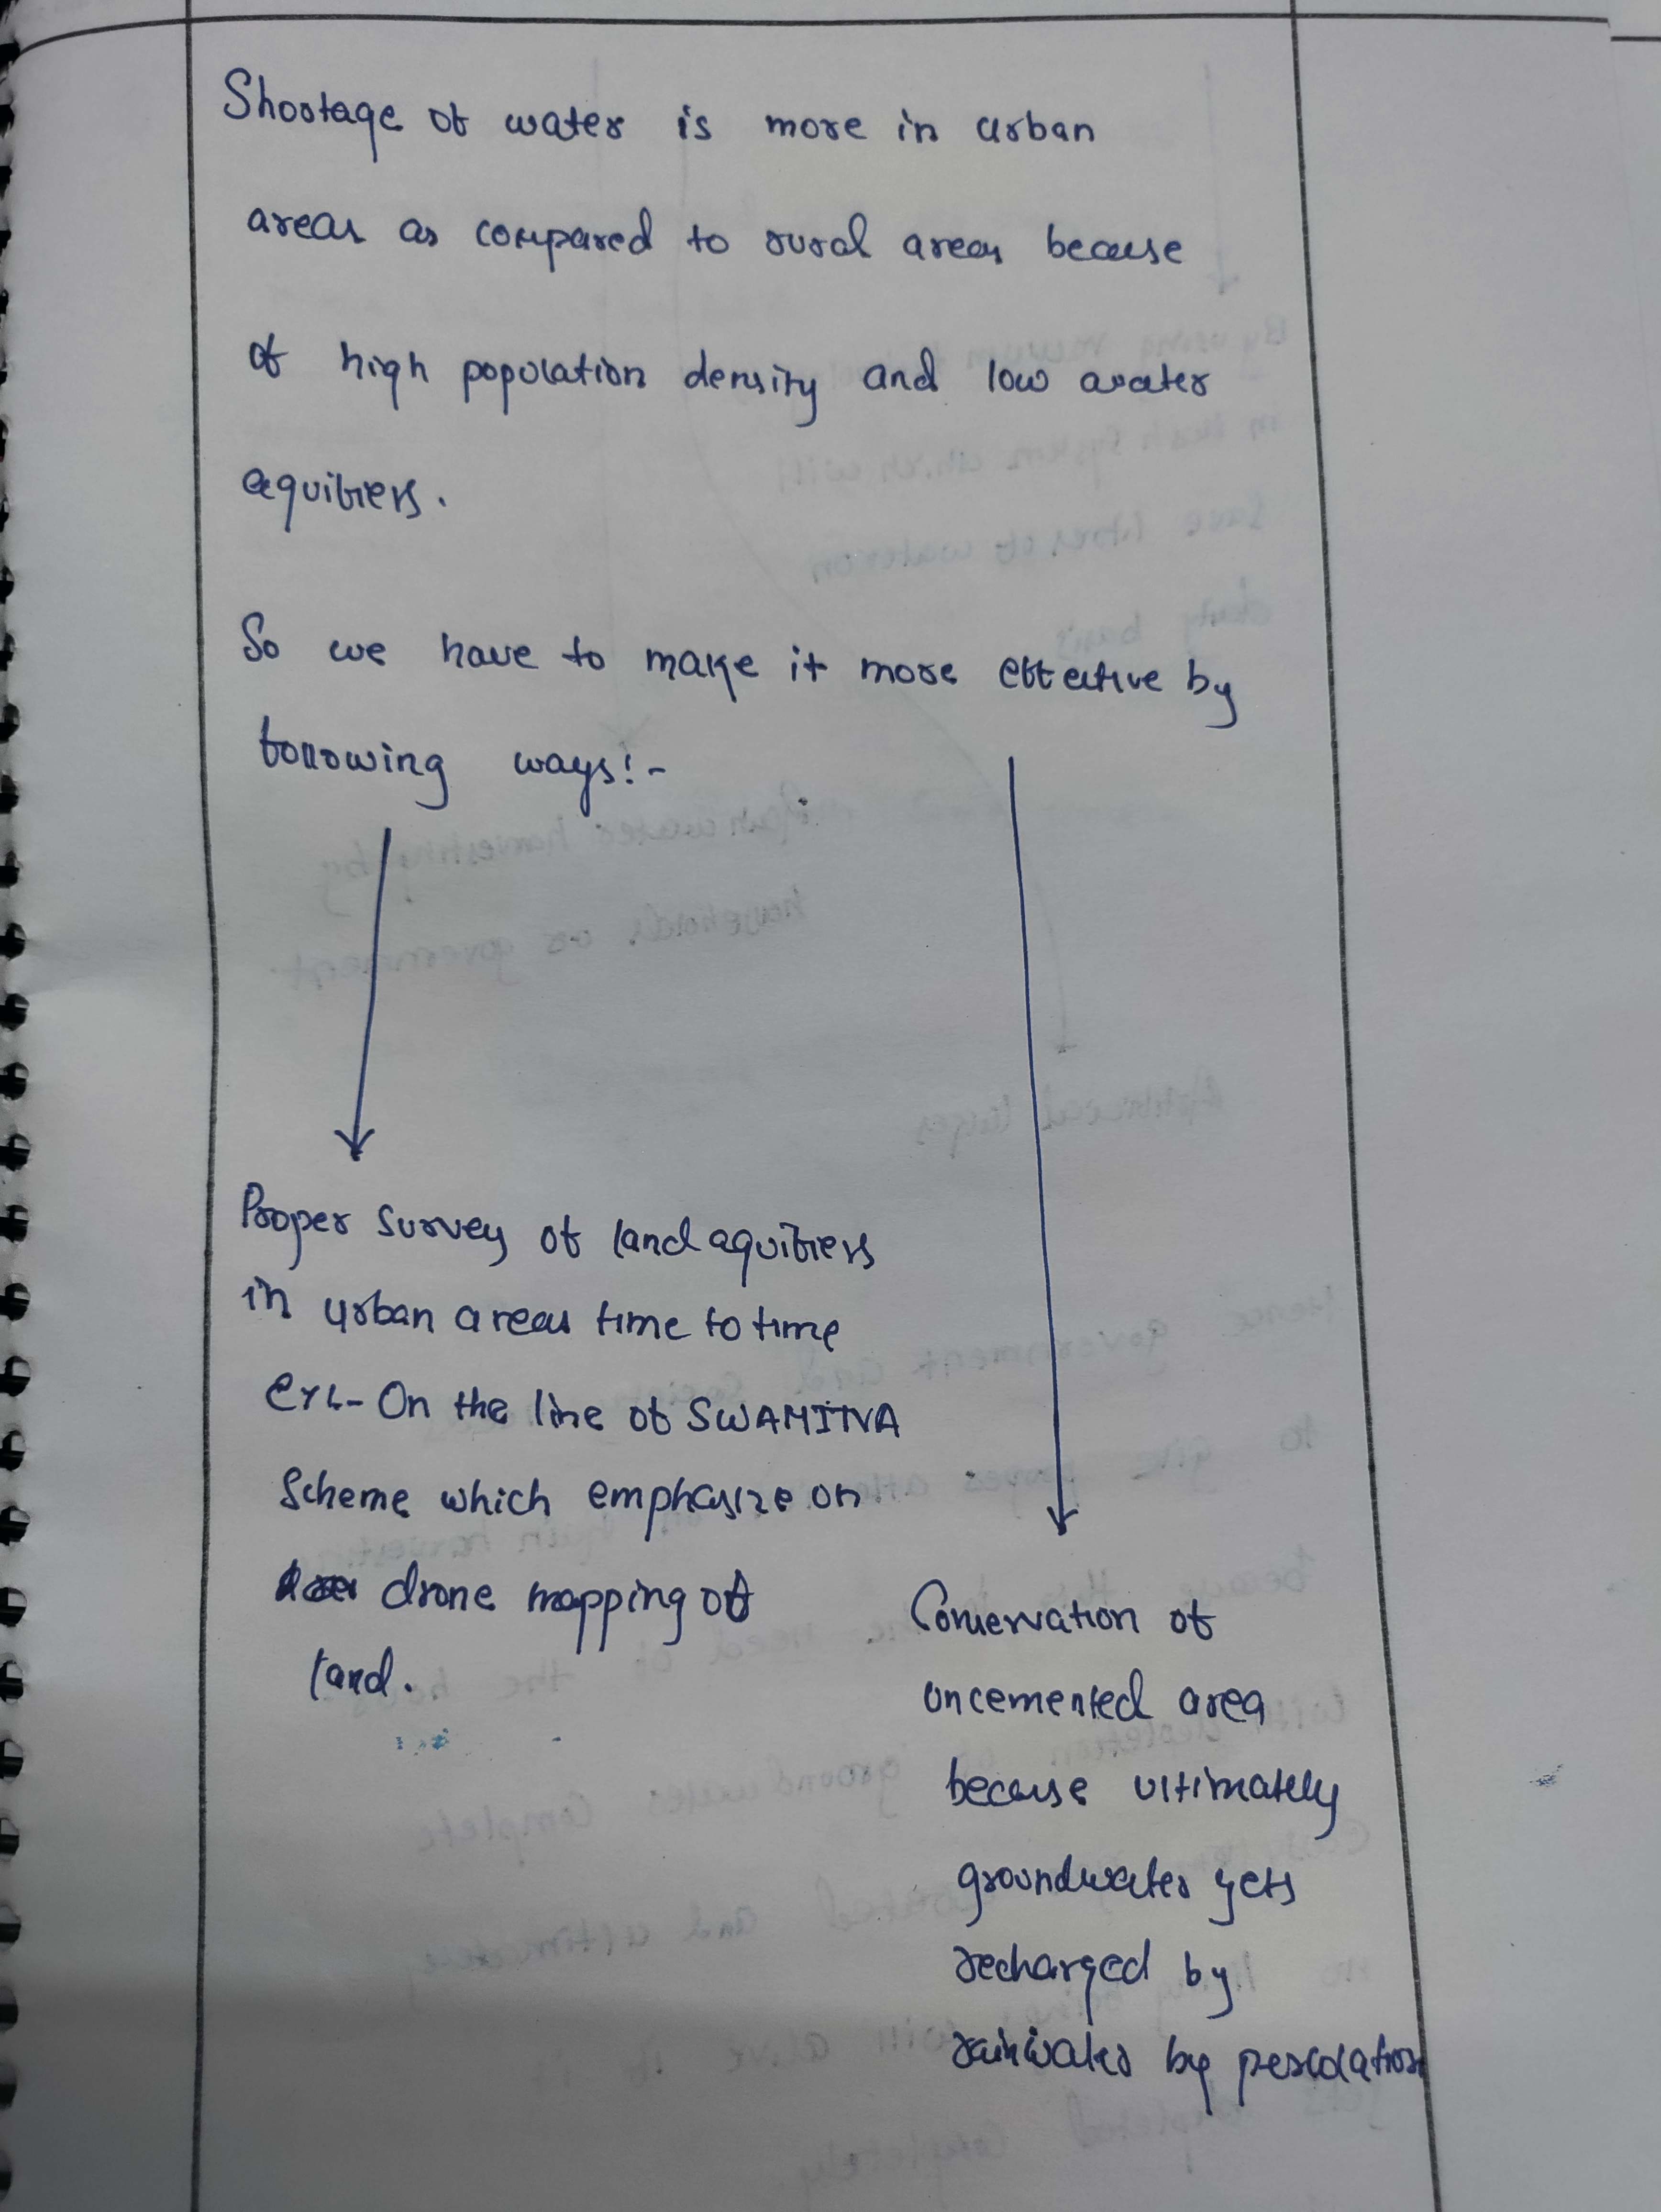 Shortage of water is more in urban
areas as compared to rural areas because
of high population density and low water
aquifiers.
So we have to make it more effective by
following ways:-
Proper survey of land aquifiers
in urban areas time to time
On the line of SWAMITVA
Scheme which emphasize on
drone mapping of
land.
Conservation of
uncemented area
because ultimately
groundwater gets
recharged by
rainwater by percolation